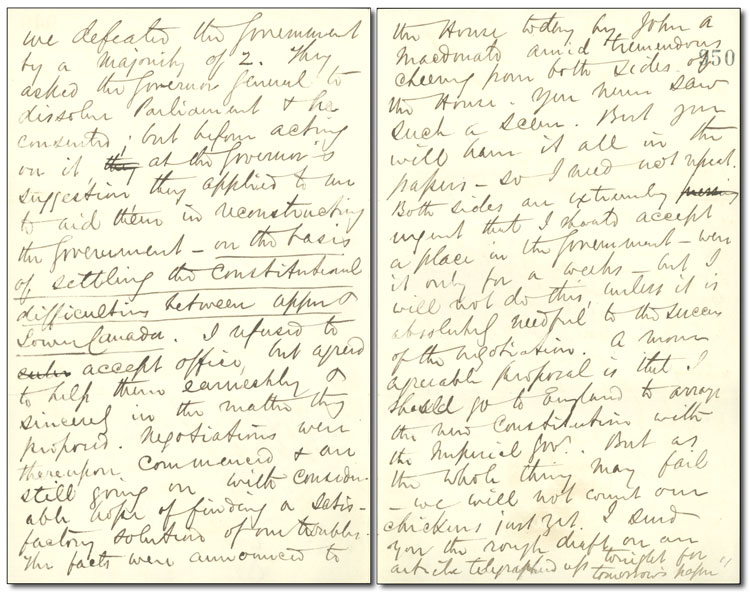 we defeated the Government
by a majority of 2. They
asked the Governor General to
dissolve Parliament & he
consented. but before acting
on it, they at the Governor's
suggestion they applied to me
to aid them in reconstructing
the Government – on the basis
of settling the Constitutional
difficulties between Upper &
Lower Canada. I refused to
accept office, but agreed
to help them earnestly &
sincerely in the matter they
proposed. Negotiations were
thereupon commenced & are
still going on with consider-
able hope of finding a satis-
factory solution of our troubles –
The facts were announced to
the House today by John A
Macdonald amid tremendous
cheering from both sides of
950
the House. You never saw
such a scene. But you
will have it all in the
papers – so I need not repeat.
Both sides are extremely
urgent that I should accept
a place in the Government – were
it only for a week – but I
will not do this, unless it is
absolutely needful to the success
of the negotiation. A more
agreeable proposal is that I
should go to England to arrange
the new Constitution with
the Imperial Gov.. But as
the whole thing may fail
– we will not count our
chickens just yet. I send
you the rough draft on an
article telegraphed up tonight for
tomorrow's paper"